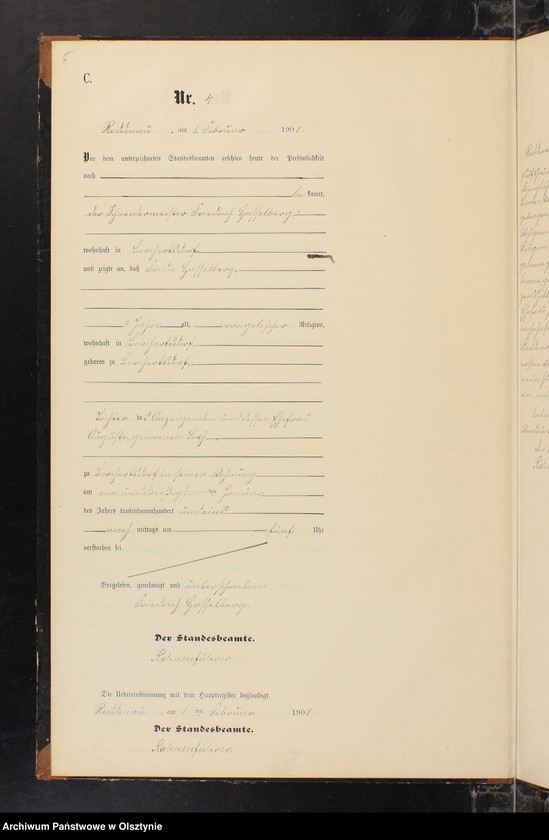 C.
Nr. 4.
Reddenau, am 1. Februar 1901.
Vor dem unterzeichneten Standesbeamten erschien heute der Persönlichkeit
nach
be kannt,
der Schneidermeister Friedrich Hasselberg
wohnhaft in Borchertsdorf
und zeigte an, daß Hasselberg,
Jahre alt, evangelischer Religion,
wohnhaft in Borchertsdorf
geboren zu Borchertsdorf,
Tochter des Anzeigenden und dessen Ehefrau
Auguste, geborenen
zu Borchertsdorf in seiner Wohnung
am ein und dreißigsten Januar
des Jahres tausendneunhundert und eins
nach mittags um fünf Uhr
verstorben sei.
Vorgelesen, genehmigt und unterschrieben
Friedrich Hasselberg.
Der Standesbeamte.
Die Uebereinstimmung mit dem Hauptregister beglaubigt
Reddenau, am 1. Februar 1901.
Der Standesbeamte.
Archiwum Państwowe w Olsztynie